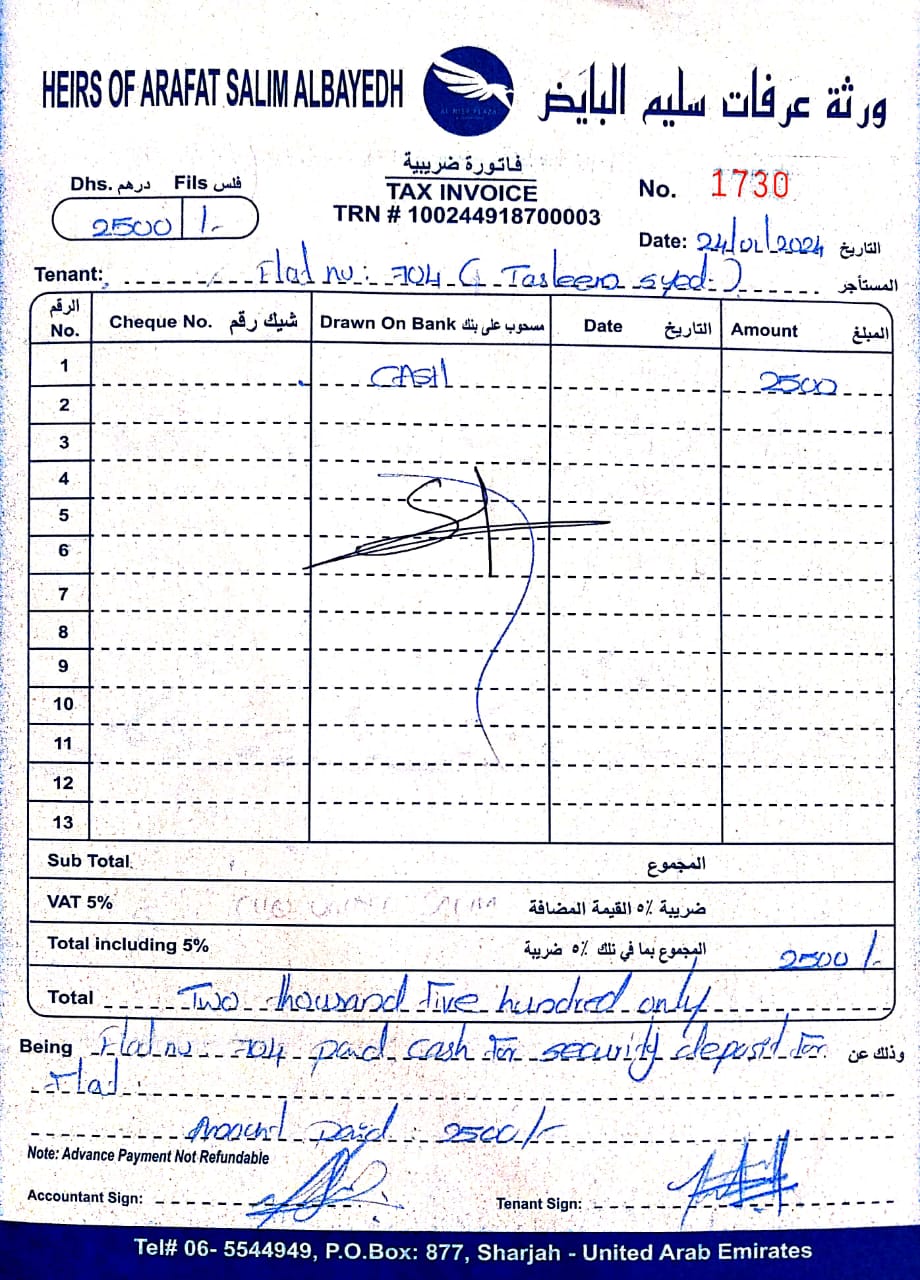 HEIRS OF ARAFAT SALIM ALBAYEDH
ورثة عرفات سليم البايض
AL NISR PLAZA
فاتورة ضريبية
TAX INVOICE
TRN # 100244918700003
Dhs. درهم Fils فلس
2500 /-
No. 1730
Date: 24/01/2024 التاريخ
Tenant: Flat no: 704 ( Tasleem Syed ) المستأجر
الرقم No. Cheque No. شيك رقم Drawn On Bank مسحوب على بنك Date التاريخ Amount المبلغ
1 CASH 2500
2
3
4
5
6
7
8
9
10
11
12
13
Sub Total المجموع
VAT 5% ضريبة ٥٪ القيمة المضافة
Total including 5% المجموع بما في ذلك ٥٪ ضريبة 2500/-
Total Two thousand five hundred only
Being Flat no: 704 paid cash for security deposit for وذلك عن
Flat.
Amount paid: 2500/-
Note: Advance Payment Not Refundable
Accountant Sign: Tenant Sign:
Tel# 06- 5544949, P.O.Box: 877, Sharjah - United Arab Emirates